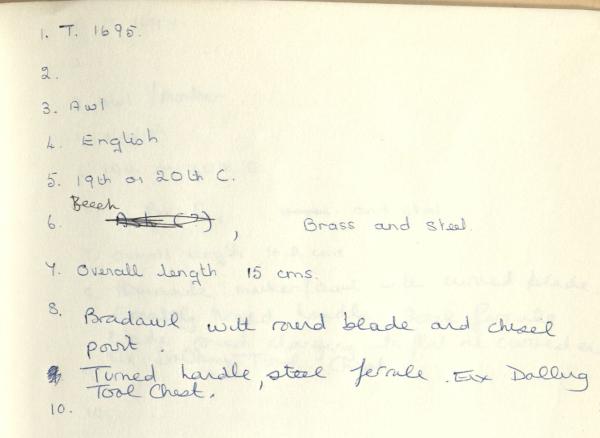 1. T. 1695.
2.
3. Awl
4. English
5. 19th or 20th C.
Beech
6. Ash (?), Brass and steel.
7. Overall length 15 cms.
8. Bradawl with round blade and chisel
point.
Turned handle, steel ferrule. Ex Dalling
Tool Chest.
10.